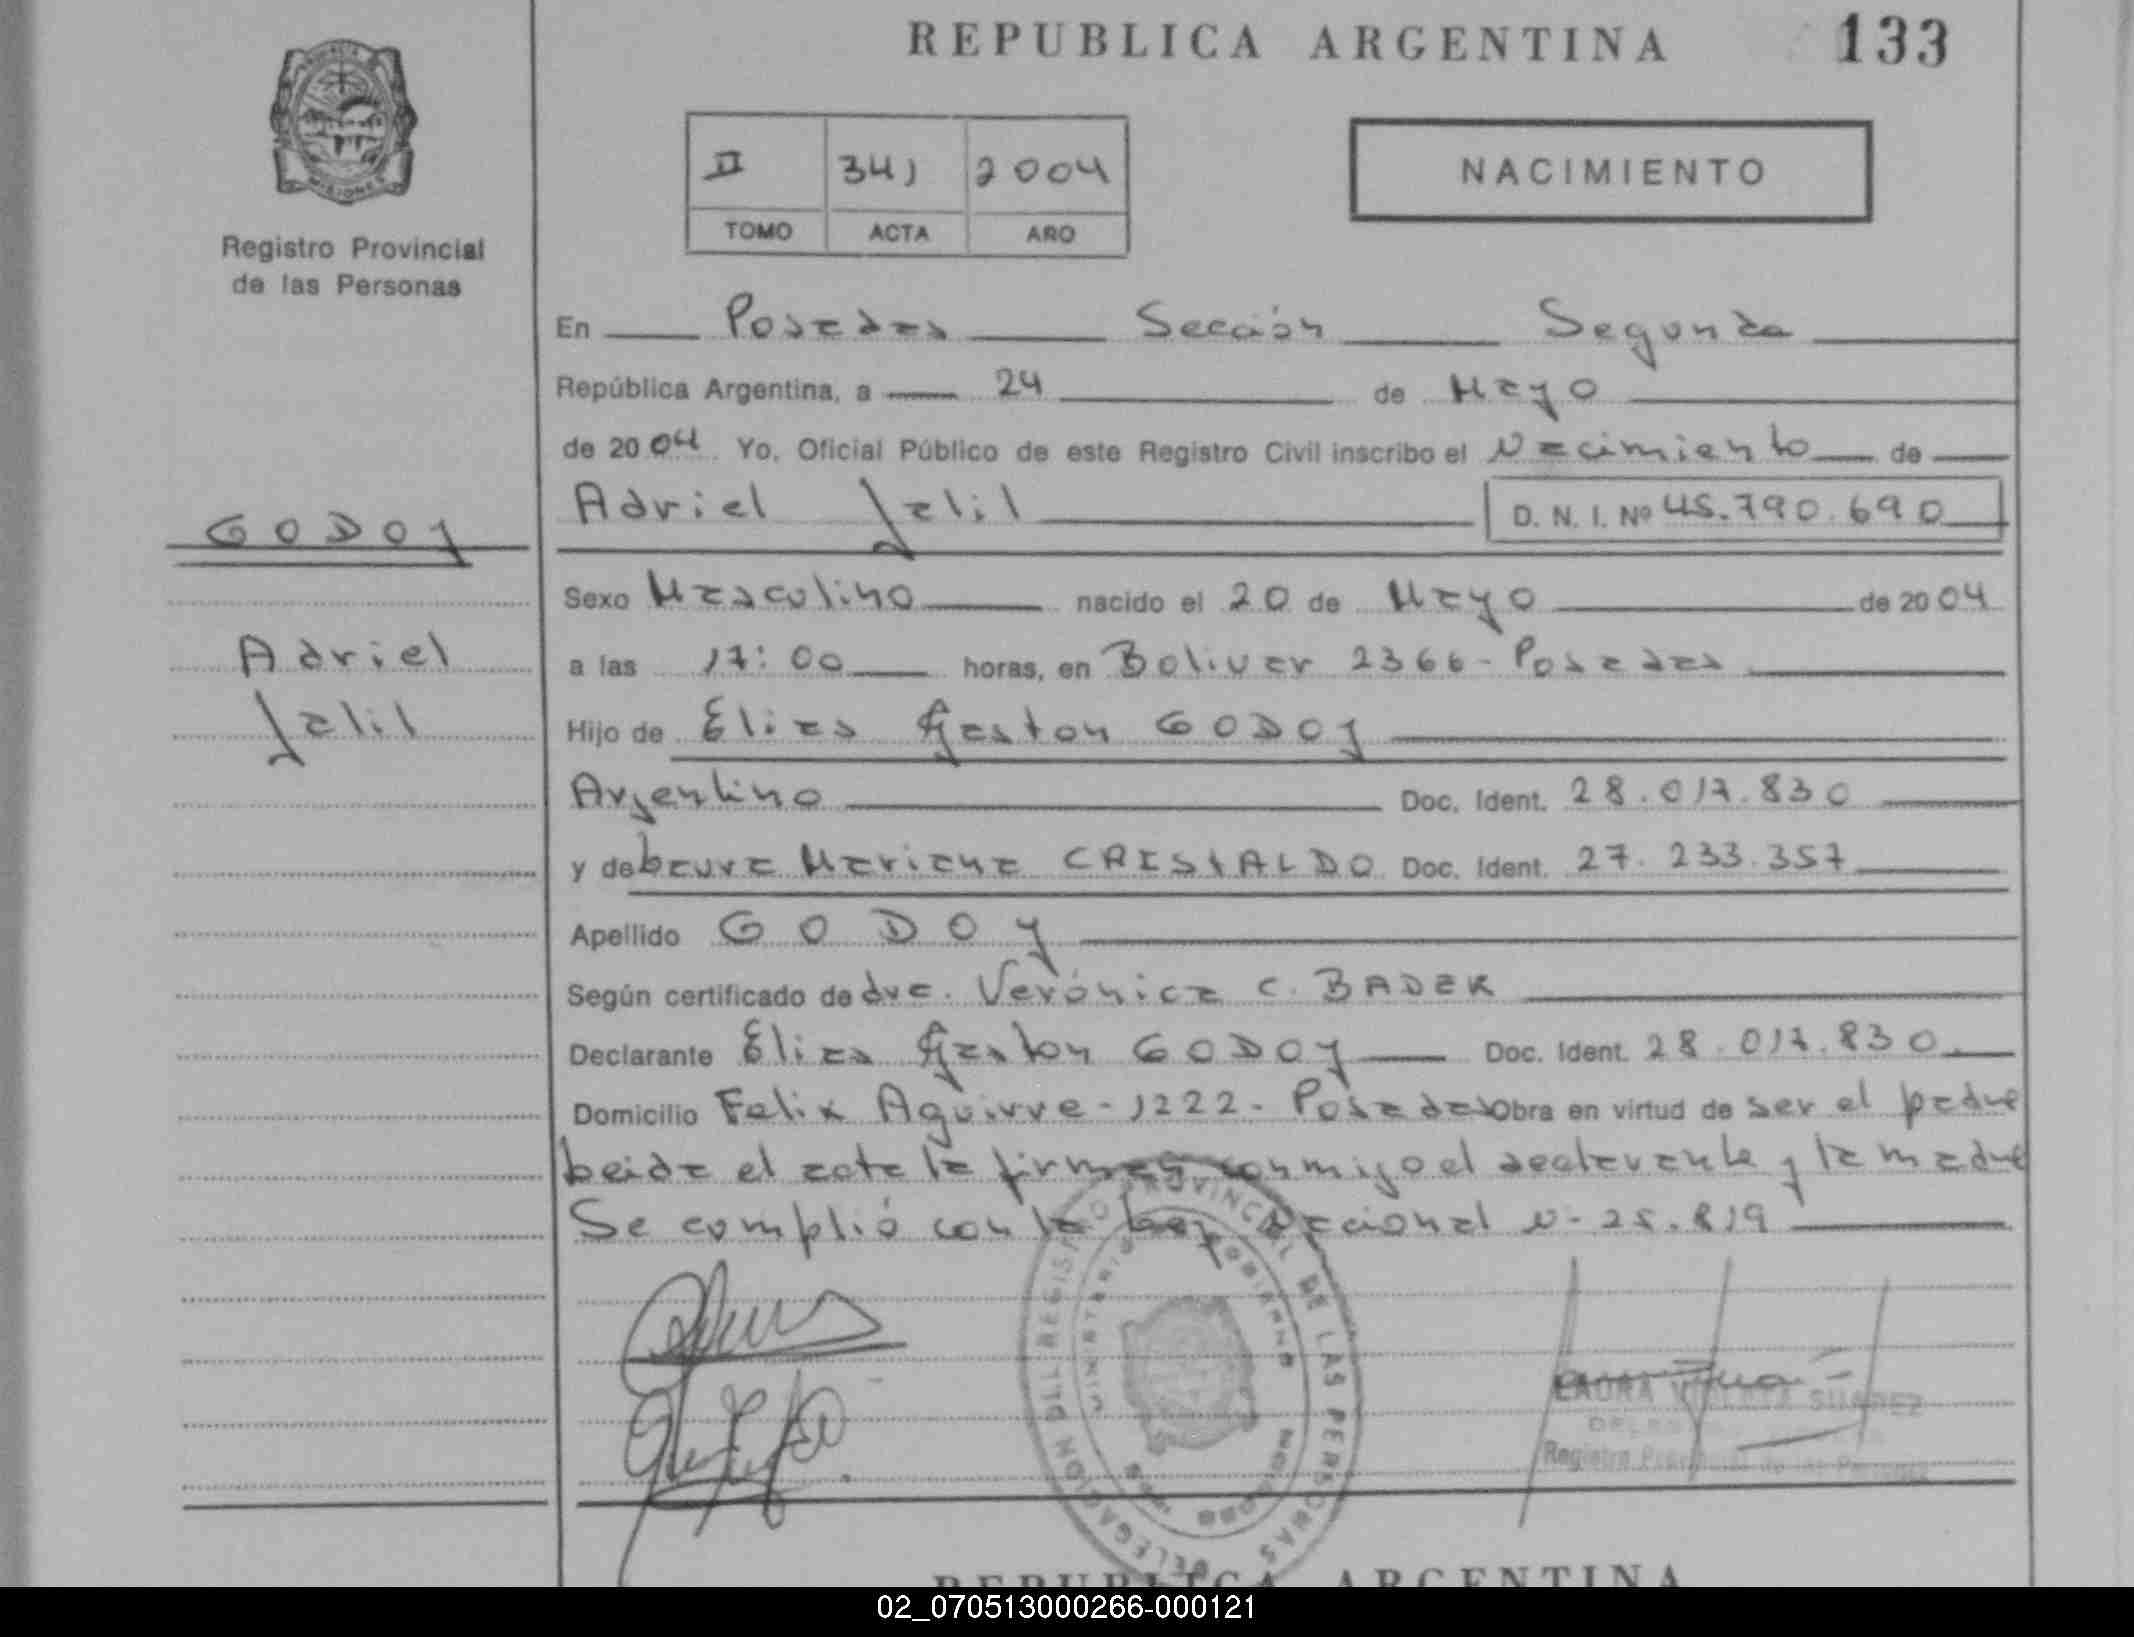 REPUBLICA ARGENTINA
133
MISIONES
Registro Provincial
de las Personas
II 341 2004
TOMO ACTA AÑO
NACIMIENTO
En Posadas Sección Segunda
República Argentina, a 24 de Mayo
de 2004 Yo, Oficial Público de este Registro Civil inscribo el Nacimiento de
Adriel Jalil D. N. I. Nº 45.790.690
GODOY
Adriel
Jalil
Sexo Masculino nacido el 20 de Mayo de 2004
a las 17:00 horas, en Bolivar 2366 - Posadas
Hijo de Elias Gaston GODOY
Argentino Doc. Ident. 28.017.830
y de Laura Mariana CRISTALDO Doc. Ident. 27.233.357
Apellido GODOY
Según certificado de dra. Verónica C. BADER
Declarante Elias Gaston GODOY Doc. Ident. 28.017.830
Domicilio Felix Aguirre - 1222 - Posadas Obra en virtud de ser el padre
Leida el acta la firman conmigo el declarante y la madre
Se cumplió con la Ley Nacional N- 25.819
DELEGACION DEL REGISTRO PROVINCIAL DE LAS PERSONAS
MINISTERIO GOBIERNO
MISIONES
LAURA SUAREZ
Registro Provincial de las Personas
REPUBLICA ARGENTINA
02_070513000266-000121